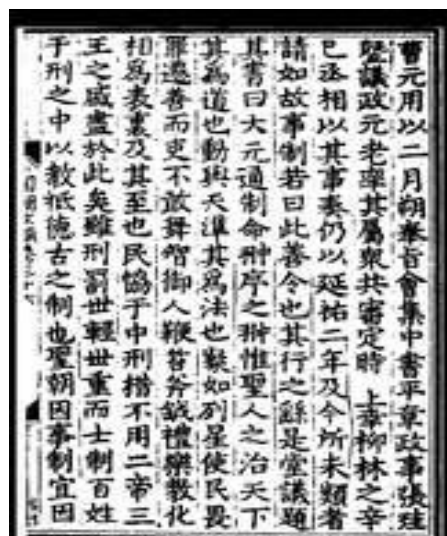 曹元用以二月朔奉旨會集中書平章政事張珪
曁議政元老率其屬衆共審定時 上幸柳林之辛
巳丞相以其事奏仍以延祐二年及今所未類者
請如故事制若曰此善令也其行之繇是堂議題
其書曰大元通制命翀序之翀惟聖人之治天下
其爲道也動與天準其爲法也粲如列星使民畏
罪遷善而吏不敢舞智御人鞭笞斧鉞禮樂敎化
相爲表裏及其至也民協于中刑措不用二帝三
王之盛盡於此矣雖刑罰世輕世重而士制百姓
于刑之中以敎祗德古之制也聖朝因事制宜因